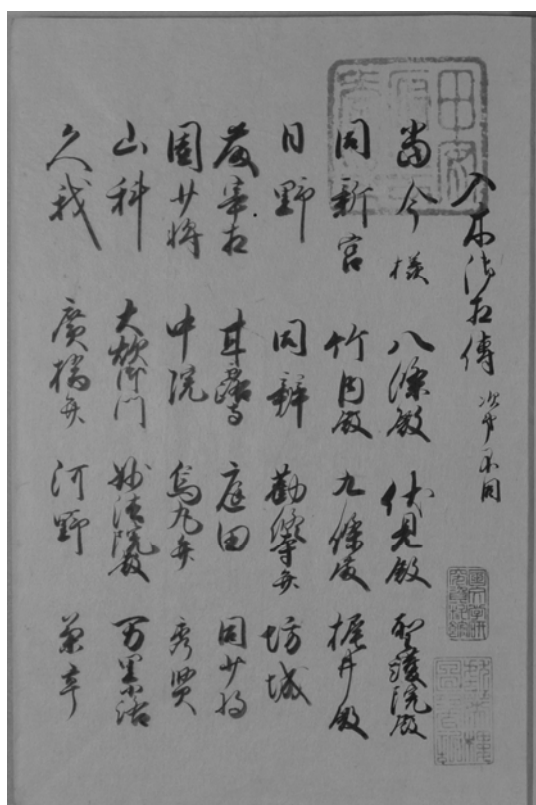 入木御相傳 次第不同
當今様 八條殿 伏見殿 聖護院殿
同新宮 竹内殿 九條殿 梶井殿
日野 同辨 勸修寺弁 坊城
藪宰相 甘露寺 庭田 同少将
園少将 中院 烏丸弁 秀賢
山科 大炊御門 妙法院殿 万里小路
久我 廣橋弁 河野